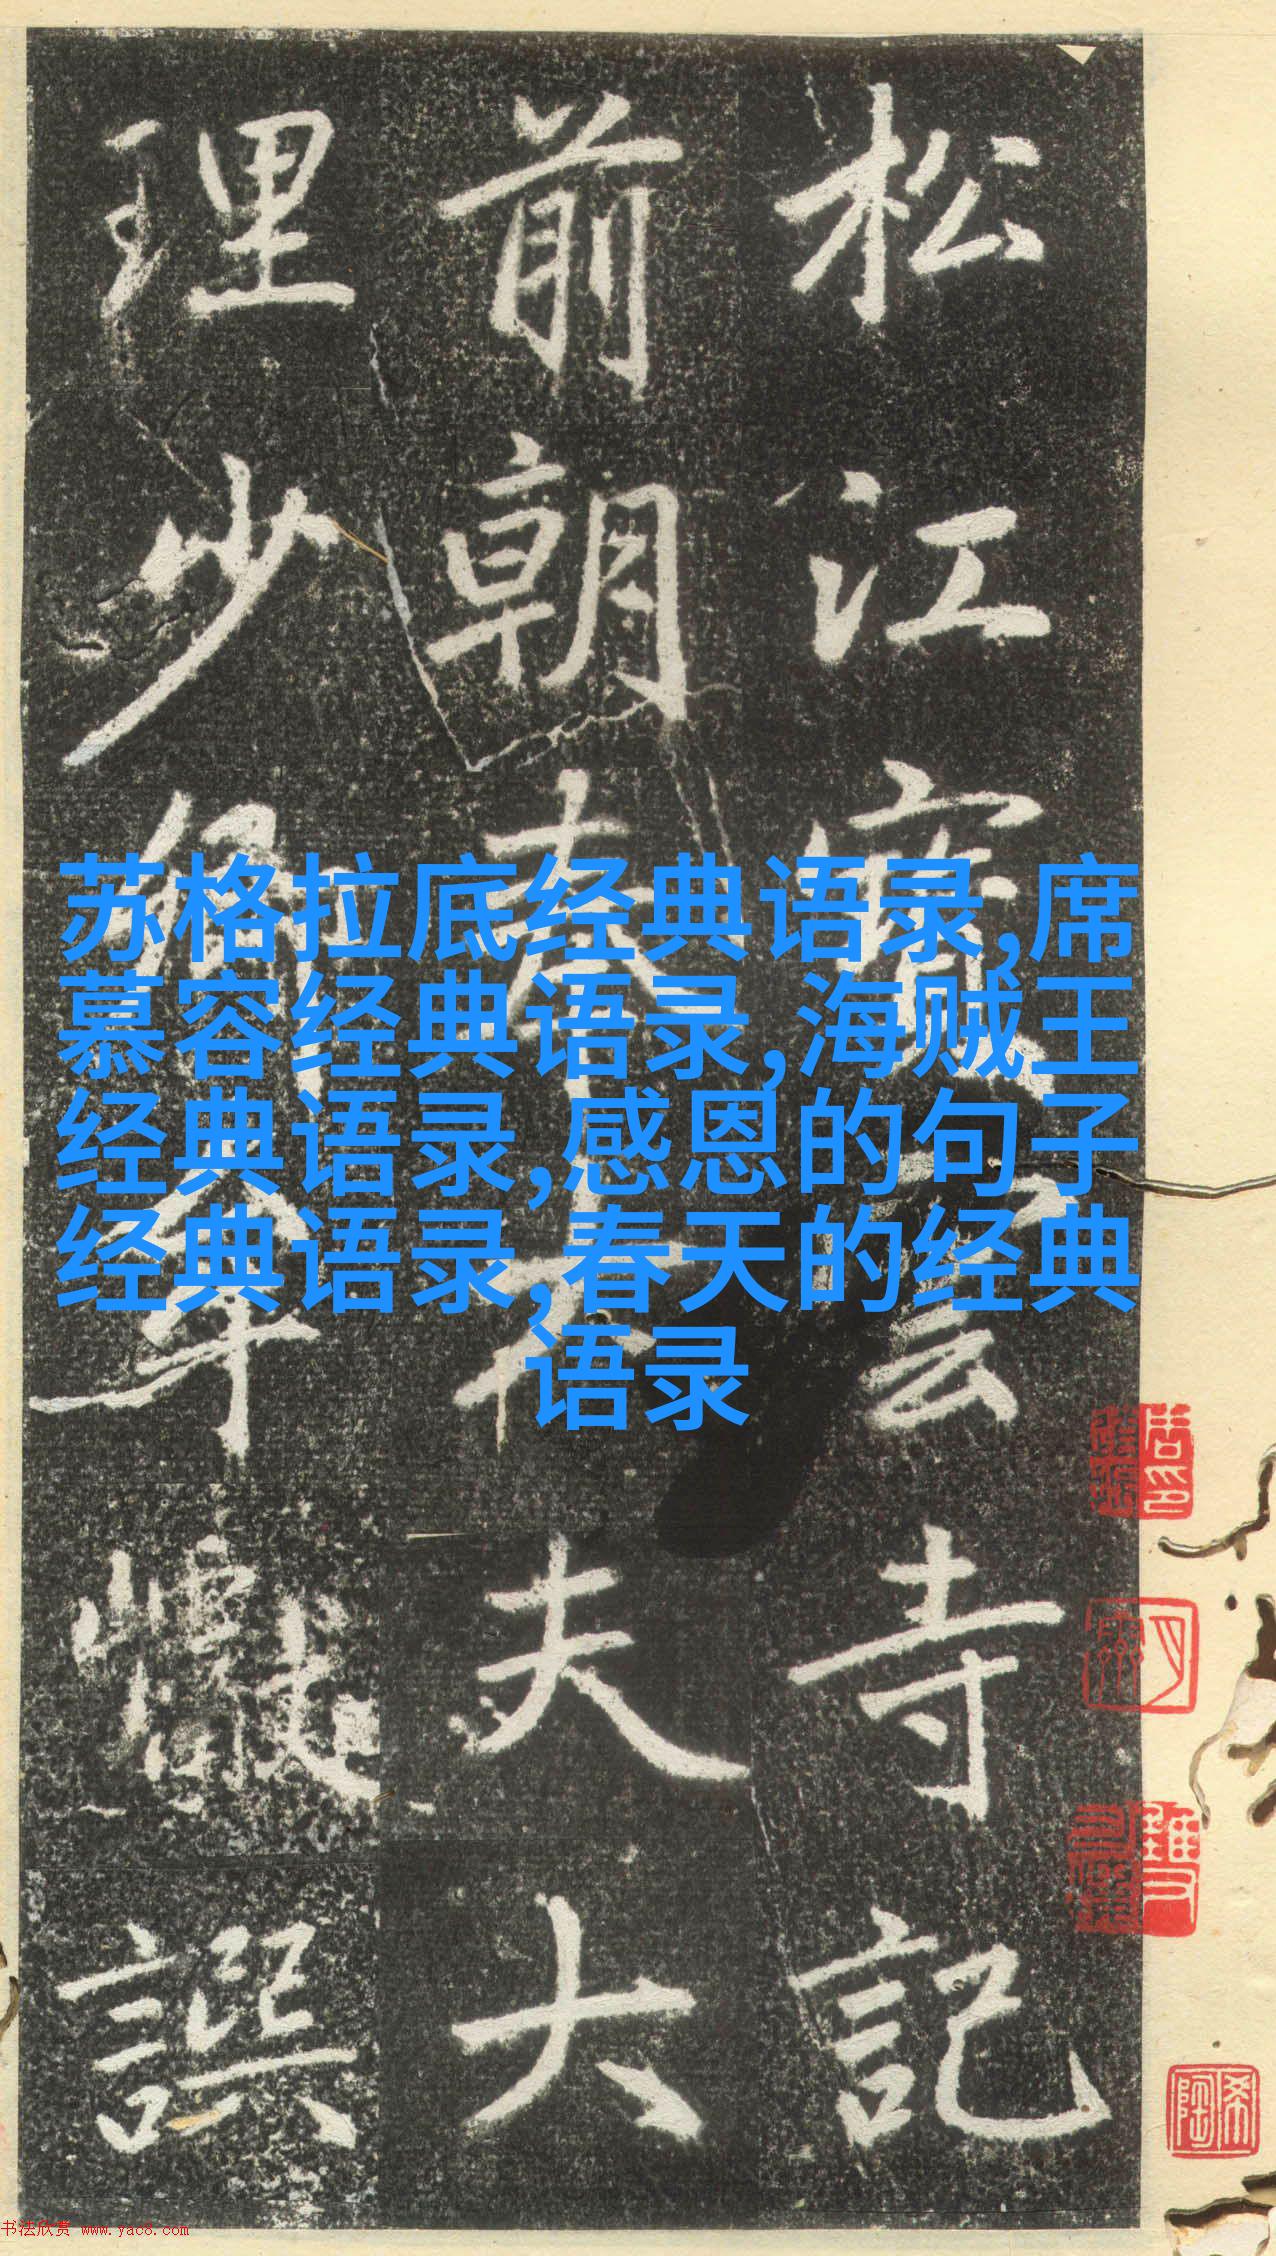 松江寶雲寺記
前朝奉大夫大
理少卿牟譔
苏格拉底经典语录,席
慕容经典语录,海贼王
经典语录,感恩的句子
经典语录,春天的经典
语录
希陶
书法欣赏 www.yac8.com